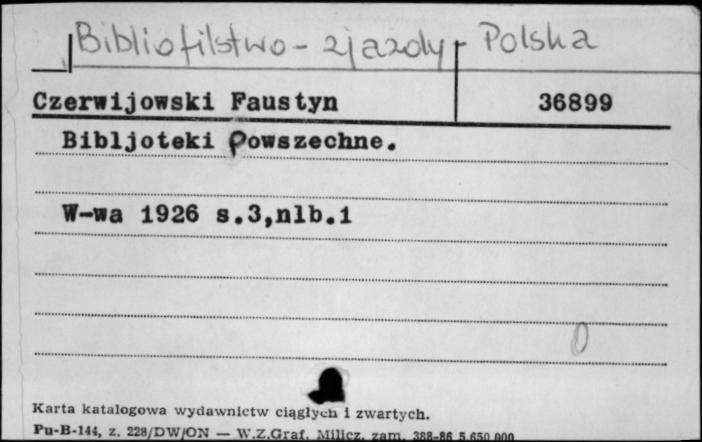 Bibliofilstwo - zjazdy - Polska
Czerwijowski Faustyn 36899
Bibljoteki Powszechne.
W-wa 1926 s.3,nlb.1
0
Karta katalogowa wydawnictw ciągłych i zwartych.
Pu-B-144, z. 228/DW/ON — W.Z.Graf. Milicz. zam. 388-86 5.650.000